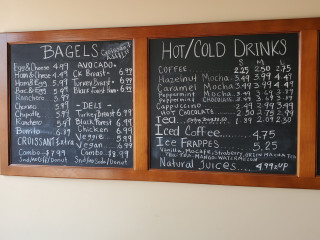 BAGELS
Egg & Cheese 4.99
Ham & Cheese 4.99
Ham & Egg 5.99
Bac & Egg 5.49
Ranchero
Chorizo 5.99
Chipotle 5.99
Ranchero 5.47
Burrito 6.99
CROISSANT Extra
Combo $7.99
2nd/Hot Coffee/Donut
AVOCADO
CK Breast 6.99
Turkey Breast 6.99
Black Forest Ham 6.99
- DELI -
Turkey Breast 6.99
Black Forest 6.99
Chicken 6.99
Veggie 5.99
Vegan 6.99
Combo $8.99
2nd/Hot Soda/Donut
HOT/COLD DRINKS
S M
COFFEE 2.25 2.50 2.75
Hazelnut Mocha 3.49 3.99 4.49
Caramel Mocha 3.49 3.99 4.49
Peppermint Mocha 3.49 3.99 4.49
Peppermint CHOCOLATE 2.49 2.99 3.49
Cappuccino 2.49 2.99 3.49
HOT CHOCOLATE 2.49 2.99 3.49
Tea 1.89 2.09 2.50
Iced Coffee 4.75
Ice FRAPPES 5.25
Vanilla, Mocha, Strawberry, Green Matcha Tea
Natural Juices 4.99 & UP